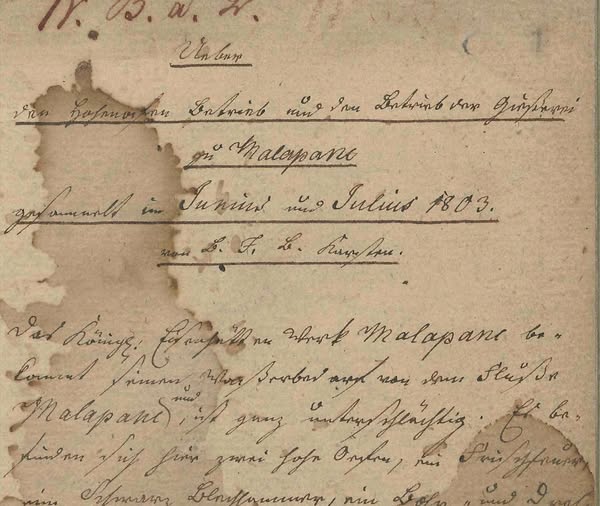 N. B. a. 2.
1
Ueber
den Hohenofen Betrieb und den Betrieb der Gießerei
zu Malapane
gesammelt im Junius und Julius 1803.
von B. Karsten.
Das Königl. Eisenhütten Werk Malapane be-
kommt seinen Waßerbedarf von dem Fluße
Malapane, und ist ganz unterschlächtig. Es be-
finden sich hier zwei hohe Oefen, ein Frischfeuer
ein Schwarz Blechhammer, ein Bohr- und Dreh